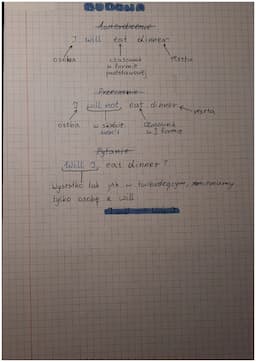 BUDOWA
Twierdzenie
I will eat dinner
osoba czasownik reszta
w formie
podstawowej
Przeczenie
I will not eat dinner
reszta
osoba w skrócie czasownik
won't w I formie
Pytanie
Will I eat dinner?
Wszystko tak jak w twierdzącym, zmieniamy
tylko osobę z will